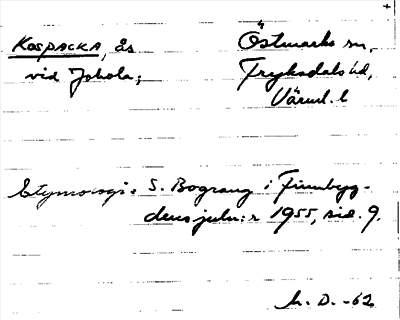 KOSPACKA, ås
vid Jokola;
Östmarks sn,
Fryksdals hd,
Värml. l
Etymologi: S. Bograng i Finnbyg-
dens julnr 1955, sid. 9.
h. D. -62